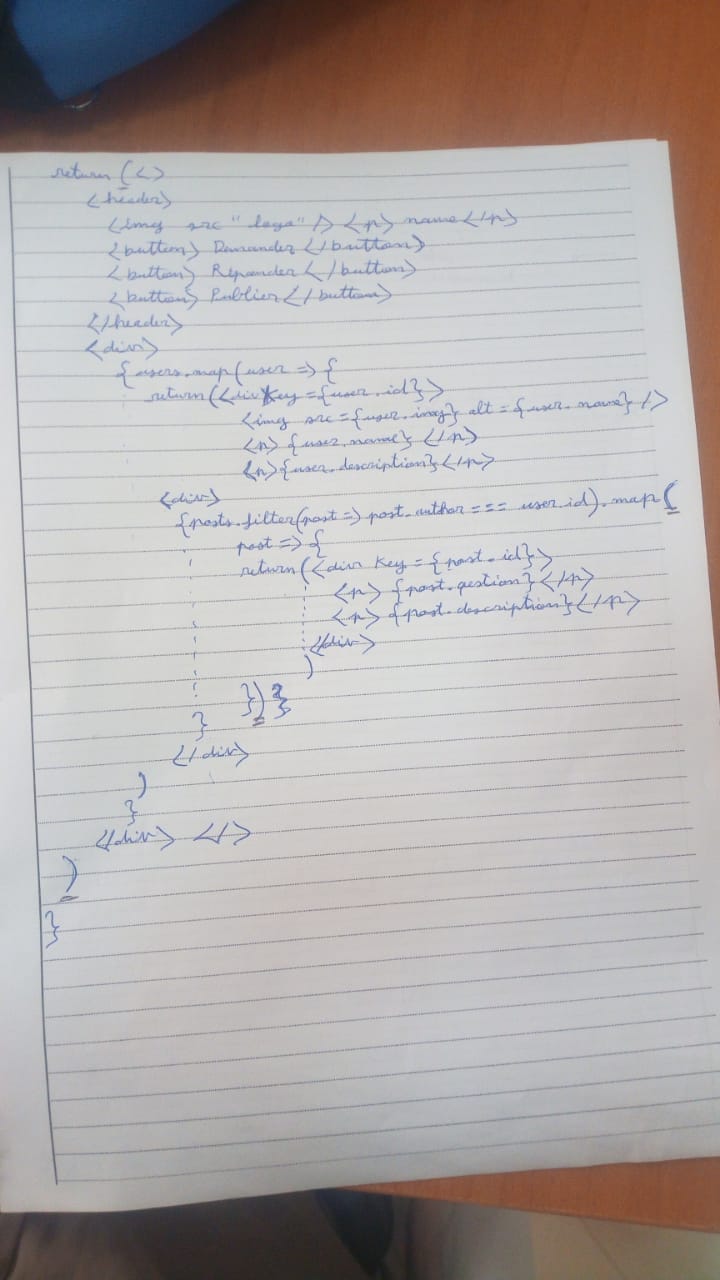 return (<>
<header>
<img src "logo" /> <p> name </p>
<button> Demander </button>
<button> Répondre </button>
<button> Publier </button>
</header>
<div>
{users.map(user => {
return(<div key={user.id}>
<img src={user.img} alt={user.name} />
<p> {user.name} </p>
<p>{user.description}</p>
<div>
{posts.filter(post => post.author === user.id).map(
post => {
return(<div key={post.id}>
<p> {post.qestion}</p>
<p> {post.description}</p>
</div>
)
})}
}
</div>
)
}
</div> </>
)
}